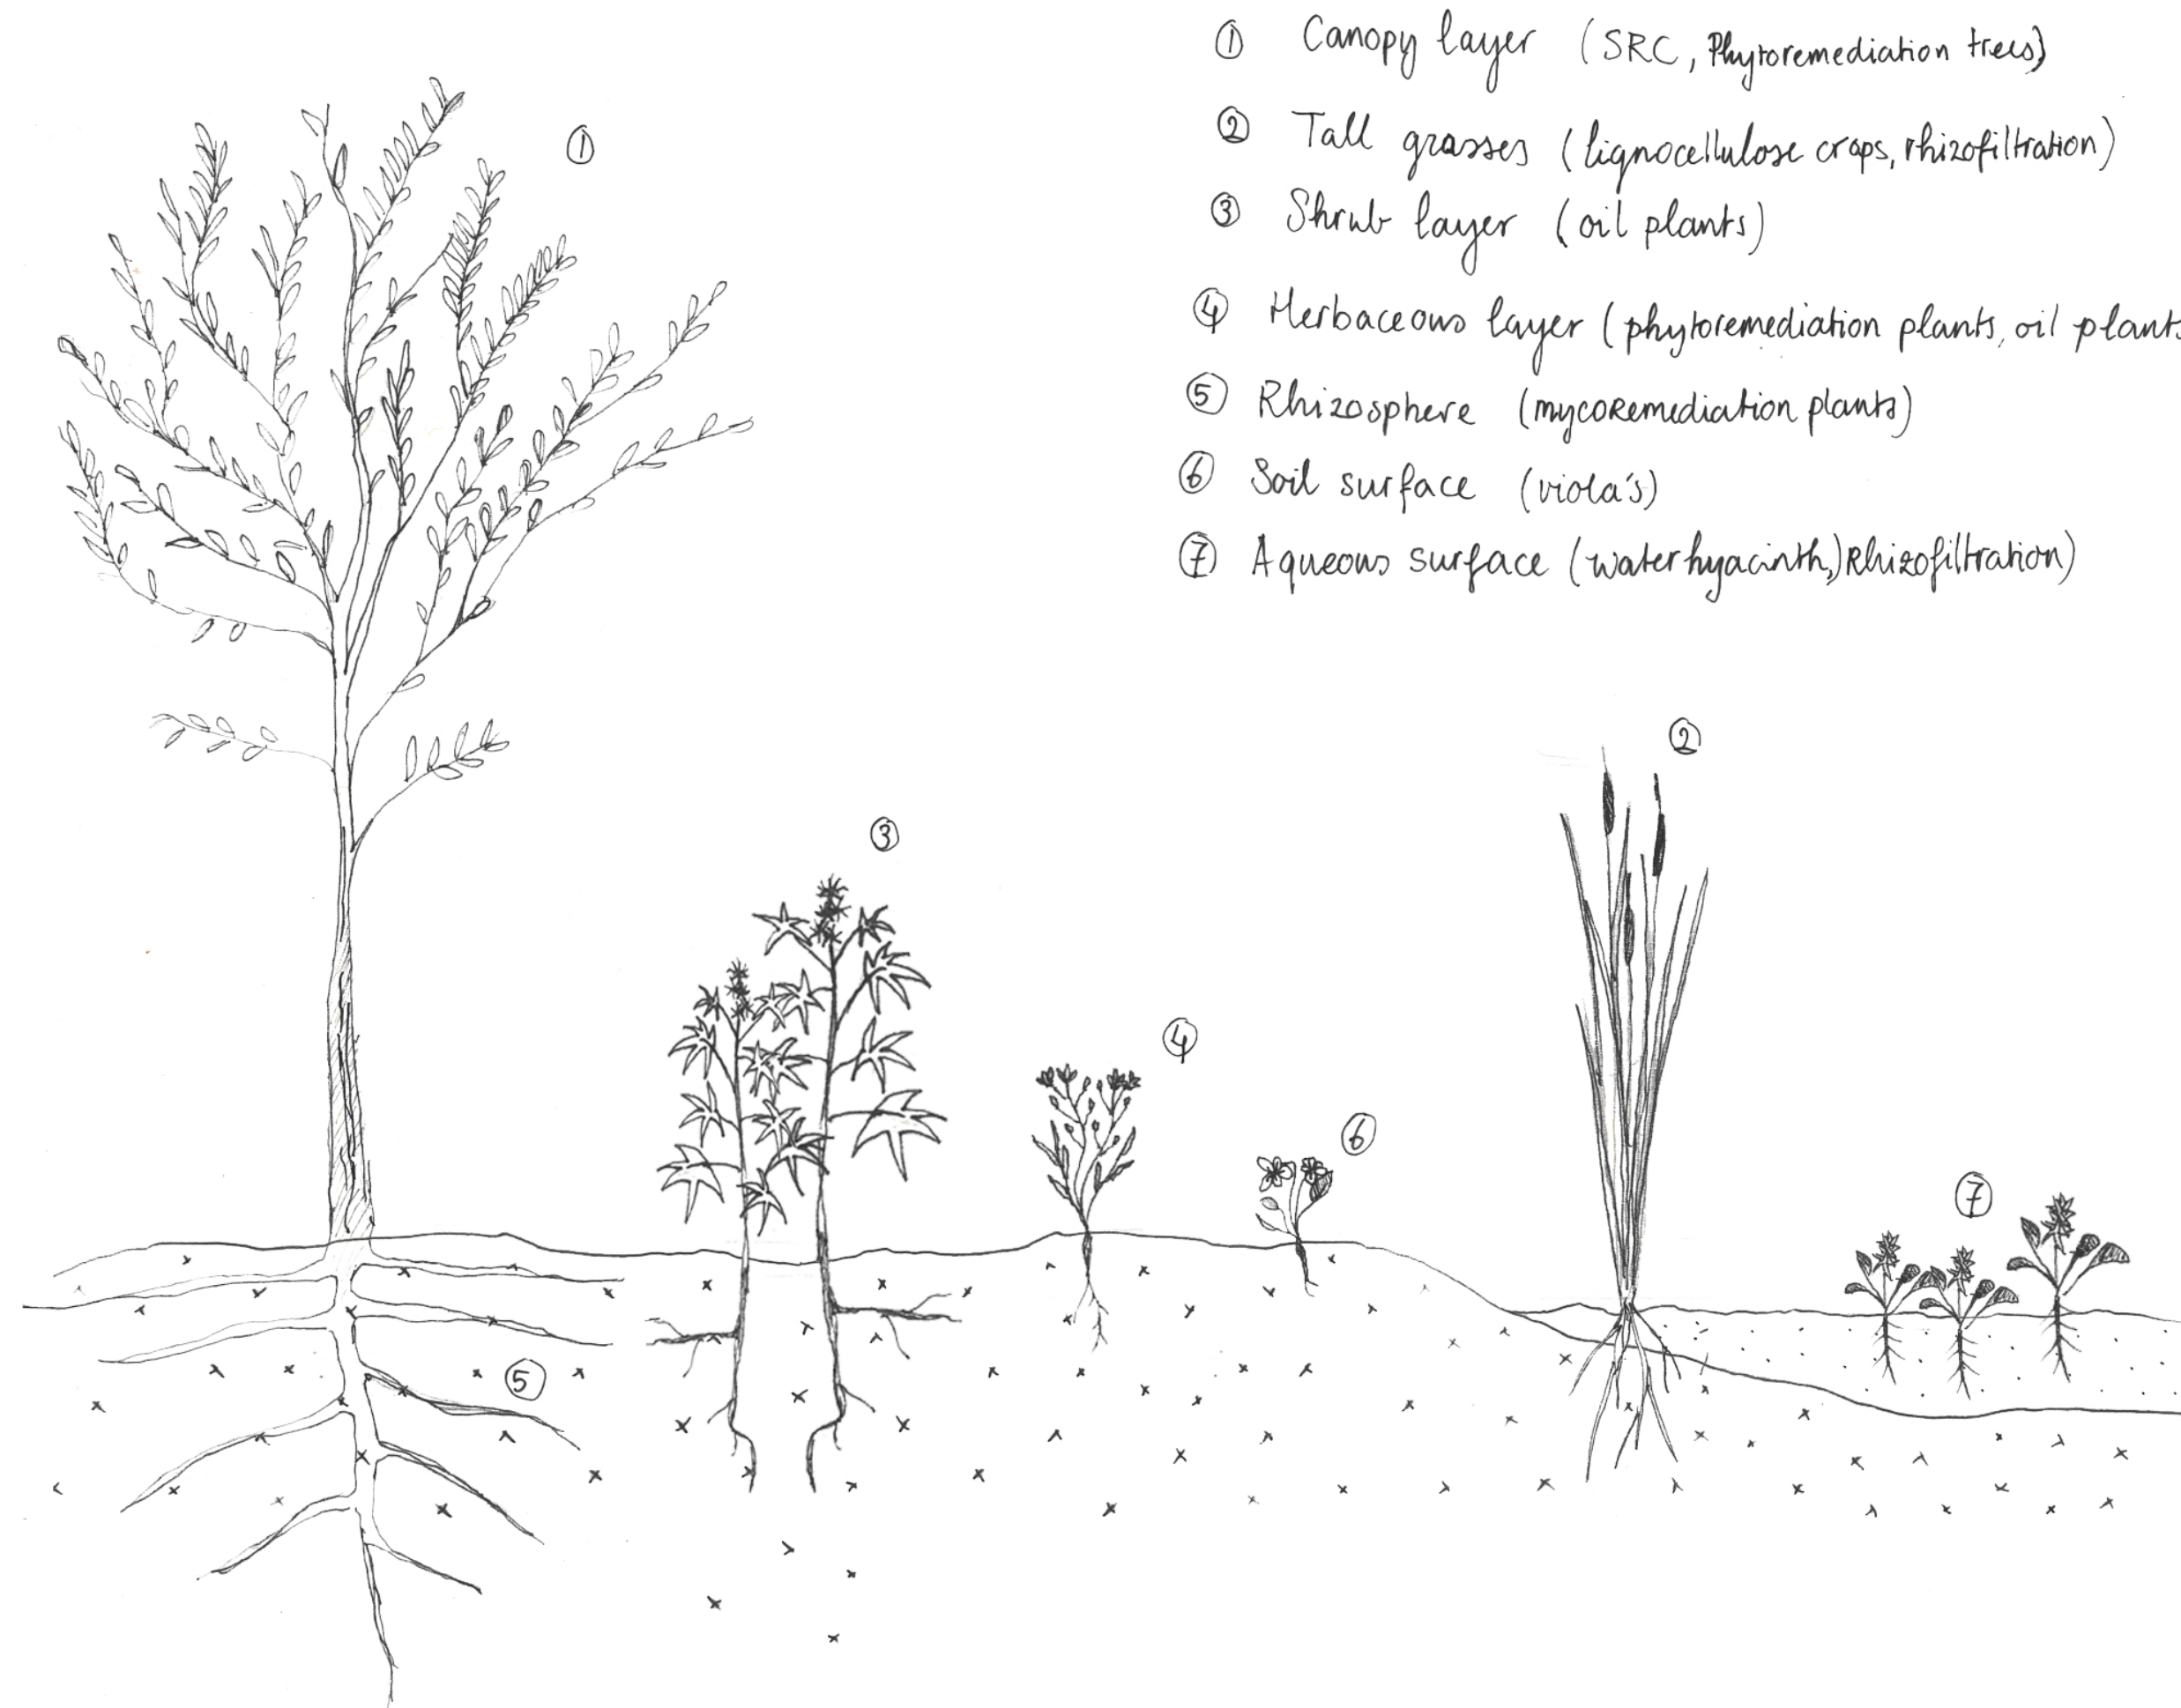 ① Canopy layer (SRC, Phytoremediation trees)
② Tall grasses (lignocellulose crops, rhizofiltration)
③ Shrub layer (oil plants)
④ Herbaceous layer (phytoremediation plants, oil plants
⑤ Rhizosphere (mycoremediation plants)
⑥ Soil surface (viola's)
⑦ Aqueous surface (waterhyacinth,) Rhizofiltration)
①
②
③
④
⑥
⑦
⑤